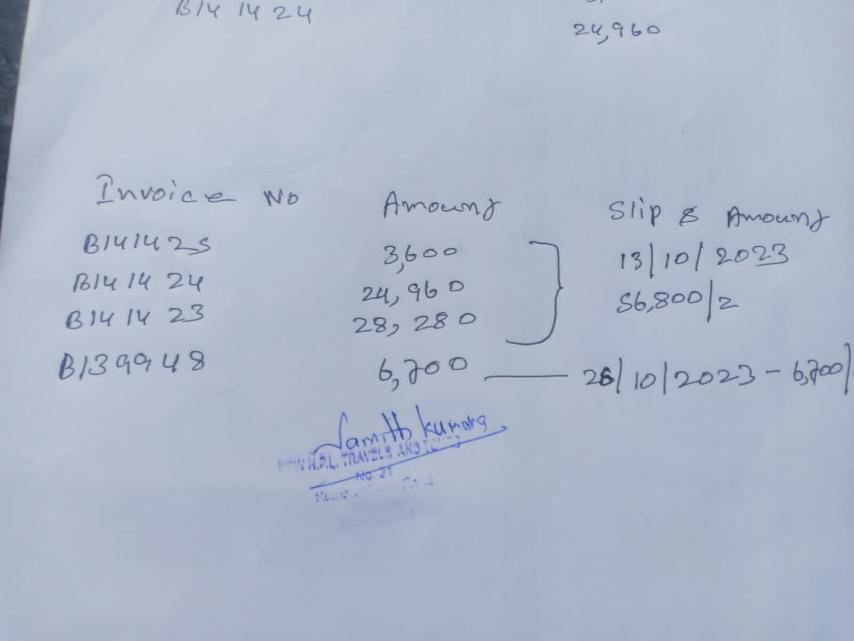 B14 14 24
24,960
Invoice No Amount Slip & Amount
B141425 3,600 13/10/2023
B141424 24,960 56,800/=
B141423 28,280
B139948 6,700 — 26/10/2023 - 6,700/
kumara
H.P.L. TRAVELS AND
No. 21